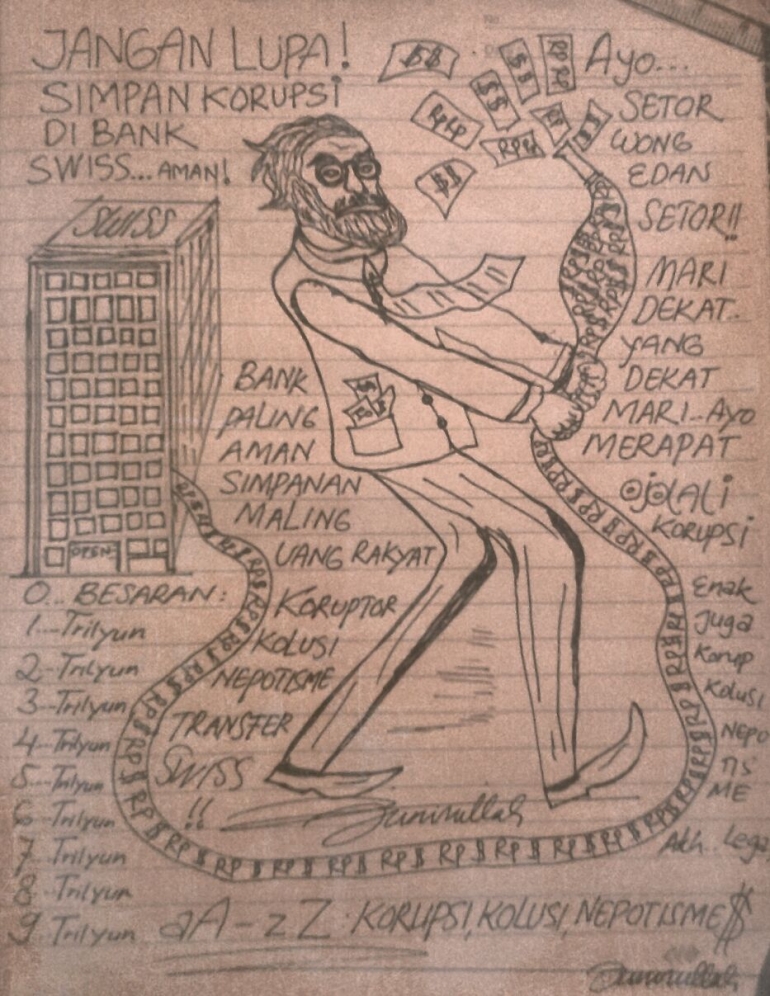 JANGAN LUPA!
SIMPAN KORUPSI
DI BANK
SWISS...AMAN!
$$
$$
RP RP
RPRP
$$
RP
$$
RPRP
$$
Ayo...
SETOR
WONG
EDAN
SETOR!!
MARI
DEKAT..
YANG
DEKAT
MARI..Ayo
MERAPAT
OJOLALI
KORUPSI
Enak
Juga
Korup
Kolusi
NEPO
TIS
ME
Akh.. Lega
SWISS
OPEN
BANK
PALING
AMAN
SIMPANAN
MALING
UANG RAKYAT
KORUPTOR
KOLUSI
NEPOTISME
TRANSFER
SWISS
!!
0... BESARAN:
1...Trilyun
2..Trilyun
3...Trilyun
4..Trilyun
5..Trilyun
6 Trilyun
7 Trilyun
8 Trilyun
9 Trilyun
aA-zZ KORUPSI,KOLUSI,NEPOTISME $